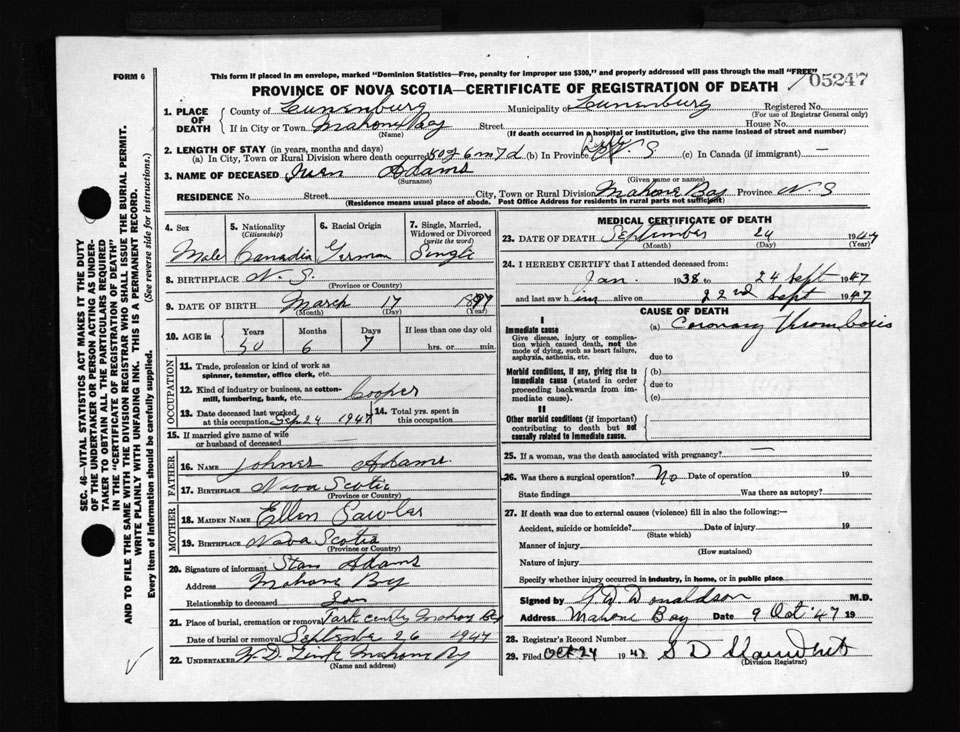 FORM 6
This form if placed in an envelope, marked "Dominion Statistics—Free, penalty for improper use $300," and properly addressed will pass through the mail "FREE"
PROVINCE OF NOVA SCOTIA—CERTIFICATE OF REGISTRATION OF DEATH
05247
1. PLACE OF DEATH
County of Lunenburg Municipality of Lunenburg Registered No.
(For use of Registrar General only)
If in City or Town Mahone Bay Street House No.
(Name) (If death occurred in a hospital or institution, give the name instead of street and number)
2. LENGTH OF STAY (in years, months and days)
(a) In City, Town or Rural Division where death occurred 50y 6m 7d (b) In Province N S (c) In Canada (if immigrant) —
3. NAME OF DECEASED Adams
(Surname) (Given name or names)
RESIDENCE No. Street City, Town or Rural Division Mahone Bay Province N S
(Residence means usual place of abode. Post Office Address for residents in rural parts not sufficient)
4. Sex
Male
5. Nationality
(Citizenship)
Canadia
6. Racial Origin
German
7. Single, Married, Widowed or Divorced
(write the word)
Single
8. BIRTHPLACE N. S.
(Province or Country)
9. DATE OF BIRTH March 17
(Month) (Day) (Year)
10. AGE in
Years Months Days If less than one day old
50 6 7 hrs. or min.
OCCUPATION
11. Trade, profession or kind of work as
spinner, teamster, office clerk, etc.
12. Kind of industry or business, as cotton-
mill, lumbering, bank, etc. Cooper
13. Date deceased last worked
at this occupation Sep 24 1947
14. Total yrs. spent in
this occupation
15. If married give name of wife
or husband of deceased
FATHER
16. NAME Adams
17. BIRTHPLACE Nova Scotia
(Province or Country)
MOTHER
18. MAIDEN NAME Ellen
19. BIRTHPLACE Nova Scotia
(Province or Country)
20. Signature of informant Adams
Address Mahone Bay
Relationship to deceased
21. Place of burial, cremation or removal Mahone Bay
Date of burial or removal September 26 1947
22. UNDERTAKER W. D. Mahone Bay
(Name and address)
MEDICAL CERTIFICATE OF DEATH
23. DATE OF DEATH September 24 1947
(Month) (Day) (Year)
24. I HEREBY CERTIFY that I attended deceased from:
Jan. 1938 to 24 Sept 1947
and last saw him alive on 22nd Sept 1947
CAUSE OF DEATH
I
Immediate cause
Give disease, injury or complication which caused death, not the mode of dying, such as heart failure, asphyxia, asthenia, etc.
(a) Coronary Thrombosis
due to
Morbid conditions, if any, giving rise to immediate cause (stated in order proceeding backwards from immediate cause).
(b)
due to
(c)
II
Other morbid conditions (if important) contributing to death but not causally related to immediate cause.
25. If a woman, was the death associated with pregnancy? —
26. Was there a surgical operation? No Date of operation 19
State findings Was there an autopsy?
27. If death was due to external causes (violence) fill in also the following:—
Accident, suicide or homicide? Date of injury 19
(State which)
Manner of injury
(How sustained)
Nature of injury
Specify whether injury occurred in industry, in home, or in public place
Signed by Donaldson M.D.
Address Mahone Bay Date 9 Oct '47 19
28. Registrar's Record Number
29. Filed Oct 24 1947 S D
(Division Registrar)
SEC. 46—VITAL STATISTICS ACT MAKES IT THE DUTY
OF THE UNDERTAKER OR PERSON ACTING AS UNDER-
TAKER TO OBTAIN ALL THE PARTICULARS REQUIRED
IN THE "CERTIFICATE OF REGISTRATION OF DEATH"
AND TO FILE THE SAME WITH THE DIVISION REGISTRAR WHO SHALL ISSUE THE BURIAL PERMIT.
WRITE PLAINLY WITH UNFADING INK. THIS IS A PERMANENT RECORD.
Every item of information should be carefully supplied. (See reverse side for instructions.)